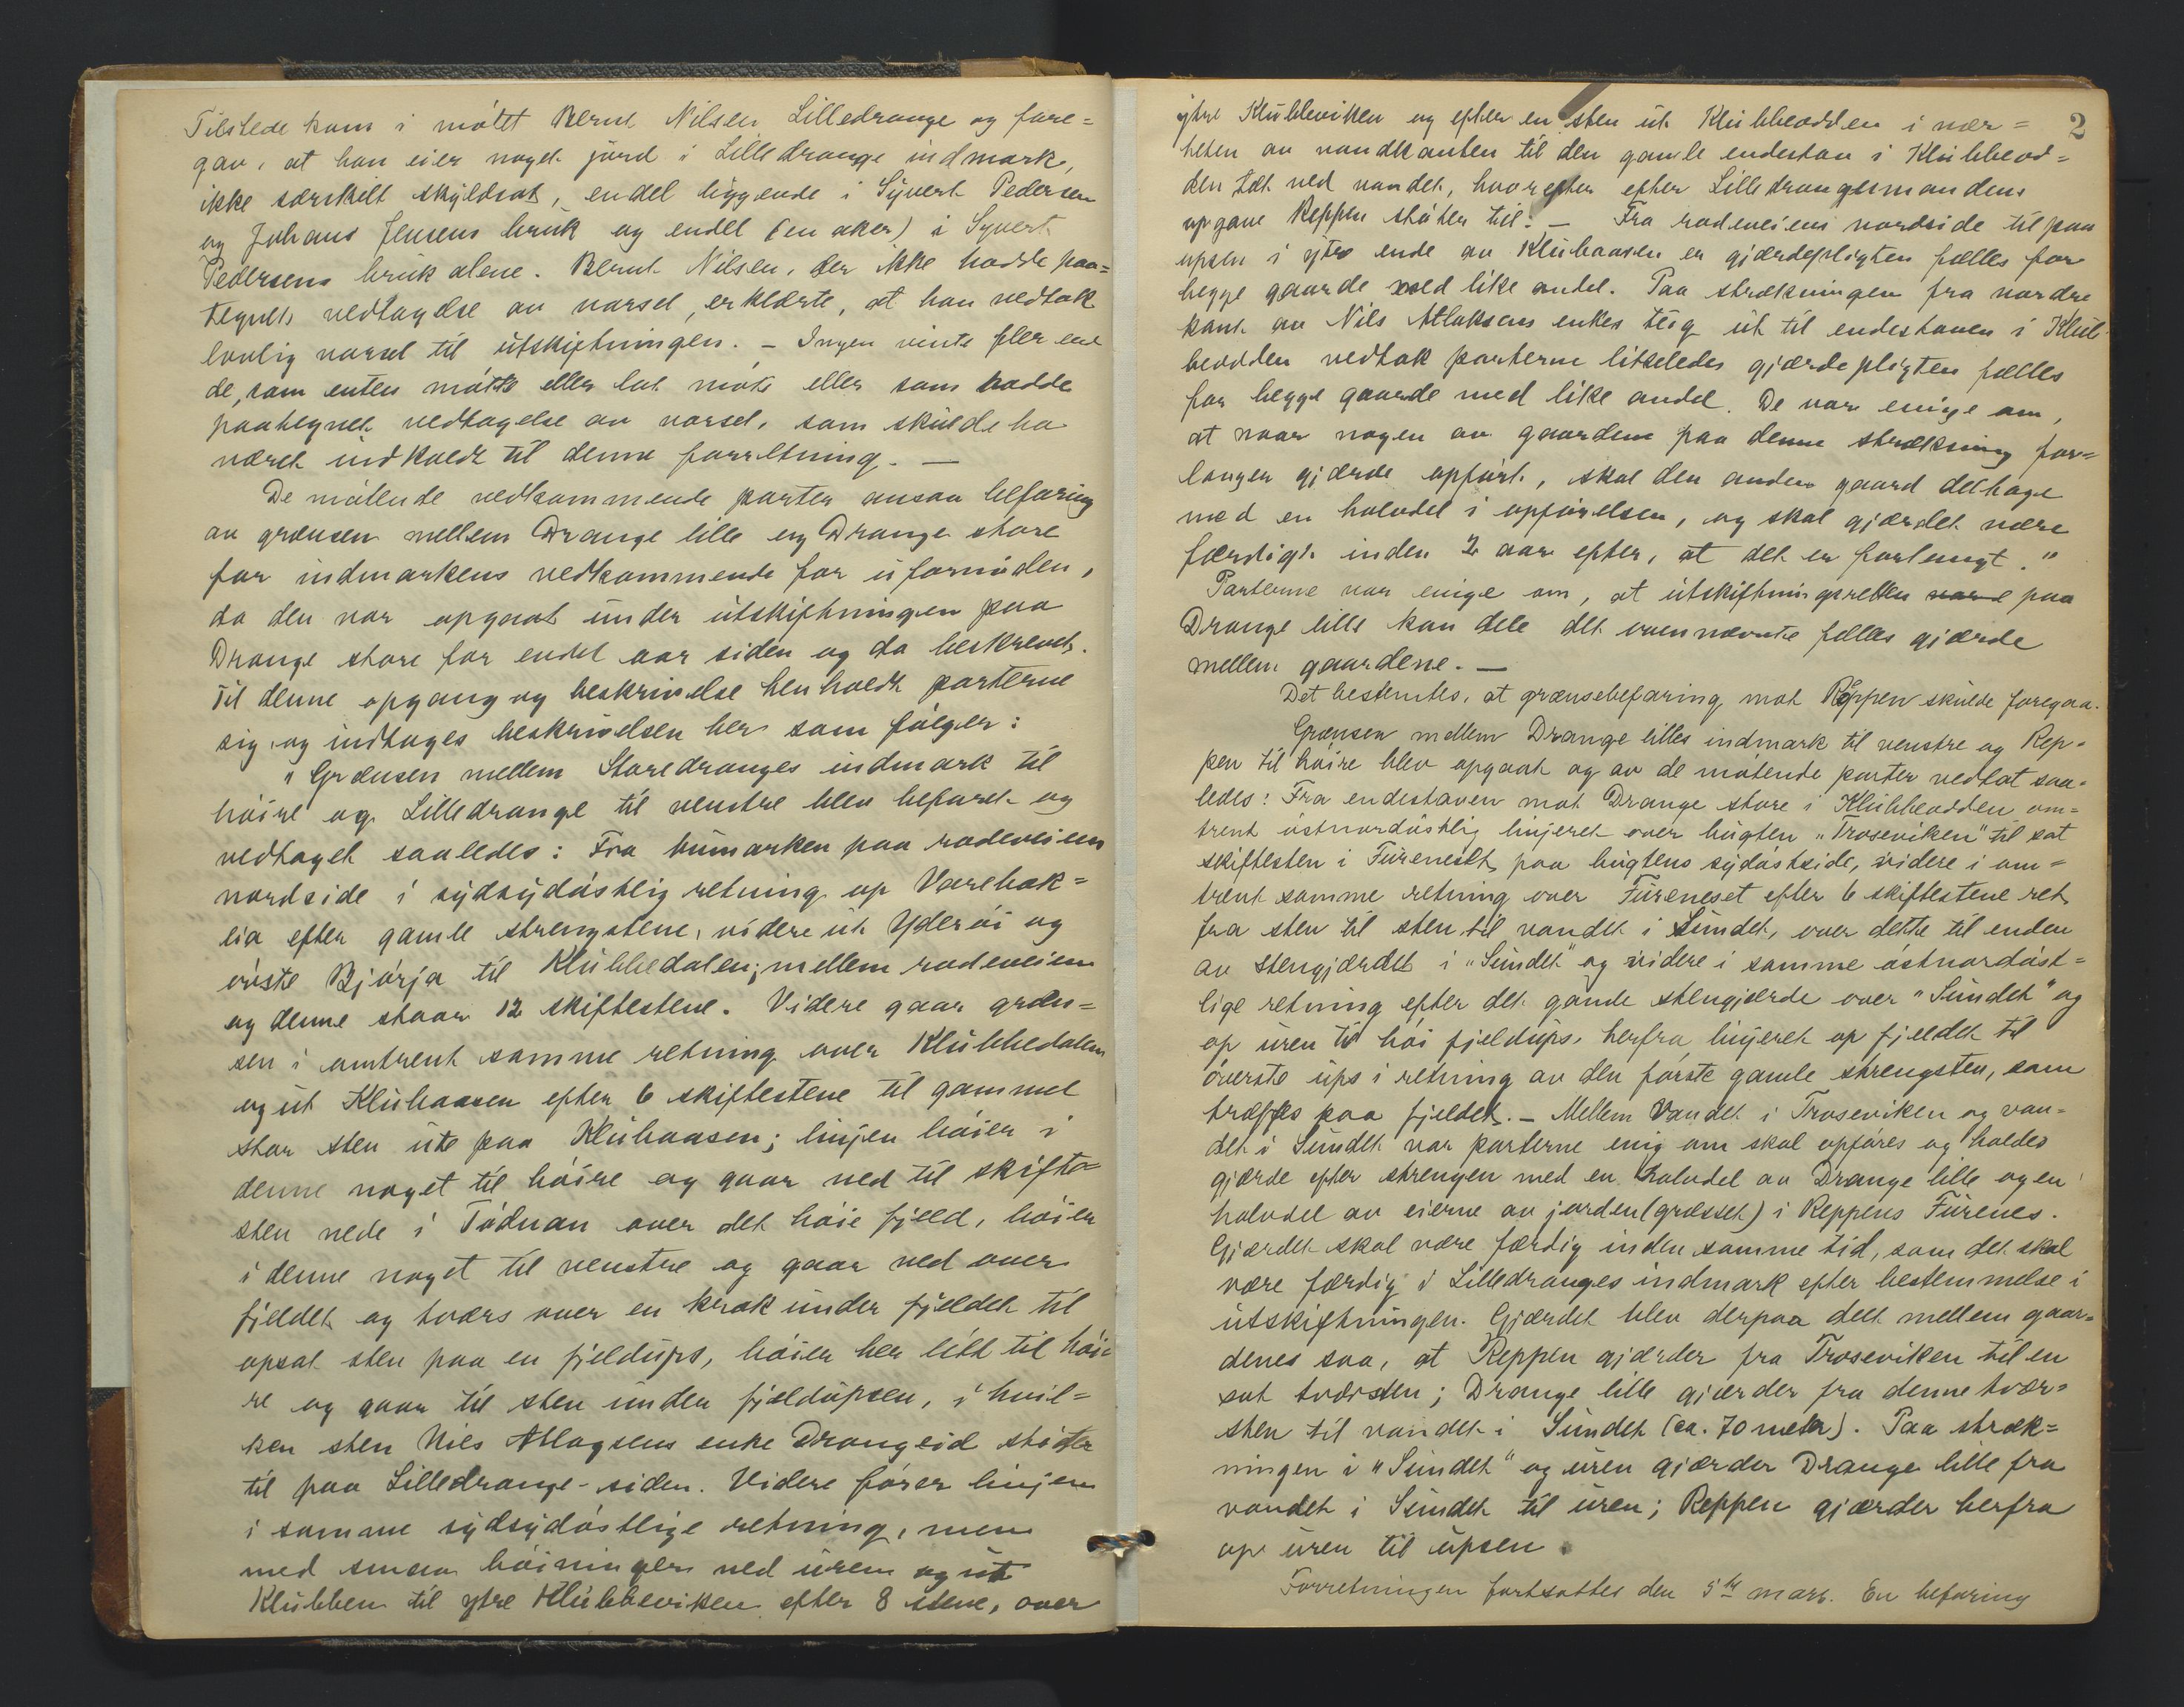 Tilstede kom i møtet Bernt Nilsen Lilledrange og fore=
gav, at han eier noget jord i Lilledrange indmark,
ikke særskilt skyldsat, endel liggende i Syvert Pedersen
og Johans Jensens bruk og endel (en aker) i Syvert
Pedersens bruk alene. Bernt Nilsen, der ikke hadde paa=
tegnet vedtagelse av varsel, erklærte, at han vedtok
lovlig varsel til utskiftningen. – Ingen vente fler end
de, som enten møtte eller lot møte eller som hadde
paategnet vedtagelse av varsel, som skulde ha
været indkaldt til denne forretning. —
De møtende vedkommende parter ansaa befaring
av grænsen mellem Drange lille og Drange store
for indmarkens vedkommende for ufornøden,
da den var opgaat under utskiftningen paa
Drange store for endel aar siden og da beskrevet.
Til denne opgang og beskrivelse henholdt parterne
sig, og indtages beskrivelsen her som følger:
„Grænsen mellem Storedranges indmark til
høire og Lilledrange til venstre blev befaret og
vedtaget saaledes: Fra bumarken paa rodeveiens
nordside i sydsydøstlig retning op Varehak=
lia efter gamle strengstene, videre ut Yderøi og
øvste Bjørja til Klubbedalen; mellem rodeveien
og denne staar 12 skiftestene. Videre gaar græn=
sen i omtrent samme retning over Klubbedalen
og ut Klubaasen efter 6 skiftestene til gammel
stor sten ute paa Klubaasen; linjen høier i
denne noget til høire og gaar ned til skifte=
sten nede i Tødnan over det høie fjeld, høier
i denne noget til venstre og gaar ned over
fjeldet og tværs over en krok under fjeldet til
opsat sten paa en fjeldups, høier her litt til høi=
re og gaar til sten under fjeldupsen, i hvil=
ken sten Nils Atlagsens enke Drangeid støter
til paa Lilledrange-siden. Videre fører linjen
i samme sydsydøstlige retning, men
med smaa høininger ned uren og ut
Klubben til ytre Klubbeviken efter 8 stene, over
2
ytre Klubbeviken og efter en sten ut Klubbeodden i nær=
heten av vandkanten til den gamle endestav i Klubbeod=
den tæt ved vandet, hvorefter efter Lilledrangesmandens
opgave Reppen støter til. – Fra rodeveiens nordside til paa
upsen i ytre ende av Klubaasen er gjærdepligten fælles for
begge gaarde med like andel. Paa strækningen fra nordre
kant av Nils Atlaksens enkes teig ut til endestaven i Klub
beodden vedtok parterne likeledes gjærdepligten fælles
for begge gaarde med like andel. De var enige om,
at naar nogen av gaardene paa denne strækning for=
langer gjærde opført, skal den anden gaard deltage
med en halvdel i opførelsen, og skal gjærdet være
færdigt inden 2 aar efter, at det er forlangt."
Parterne var enige om, at utskiftningsretten paa
Drange lille kan dele det ovennævnte fælles gjærde
mellem gaardene. —
Det bestemtes, at grænsebefaring mot Reppen skulde foregaa.
Grænsen mellem Drange lilles indmark til venstre og Rep=
pen til høire blev opgaat og av de møtende parter vedtat saa=
ledes: Fra endestaven mot Drange store i Klubbeodden om=
trent østnordøstlig linjeret over bugten „Troseviken" til sat
skiftesten i Fureneset paa bugtens sydøstside, videre i om=
trent samme retning over Fureneset efter 6 skiftestene ret
fra sten til sten til vandet i Sundet, over dette til enden
av stengjærdet i „Sundet" og videre i samme østnordøst=
lige retning efter det gamle stengjærde over „Sundet" og
op uren til høi fjeldups, herfra linjeret op fjeldet til
øverste ups i retning av den første gamle strengsten, som
træffes paa fjeldet. – Mellem Vandet i Troseviken og van=
det i Sundet var parterne enig om skal opføres og holdes
gjærde efter strengen med en halvdel av Drange lille og en
halvdel av eierne av jorden (græsset) i Reppens Furenes.
Gjærdet skal være færdig inden samme tid, som det skal
være færdig i Lilledranges indmark efter bestemmelse i
utskiftningen. Gjærdet blev derpaa delt mellem gaar=
denes saa, at Reppen gjærder fra Troseviken til en
sat tværsten; Drange lille gjærder fra denne tvær=
sten til vandet i Sundet (ca. 70 meter). Paa stræk=
ningen i „Sundet" og uren gjærder Drange lille fra
vandet i Sundet til uren; Reppen gjærder herfra
op uren til upsen.
Forretningen fortsattes den 5te mars. En befaring